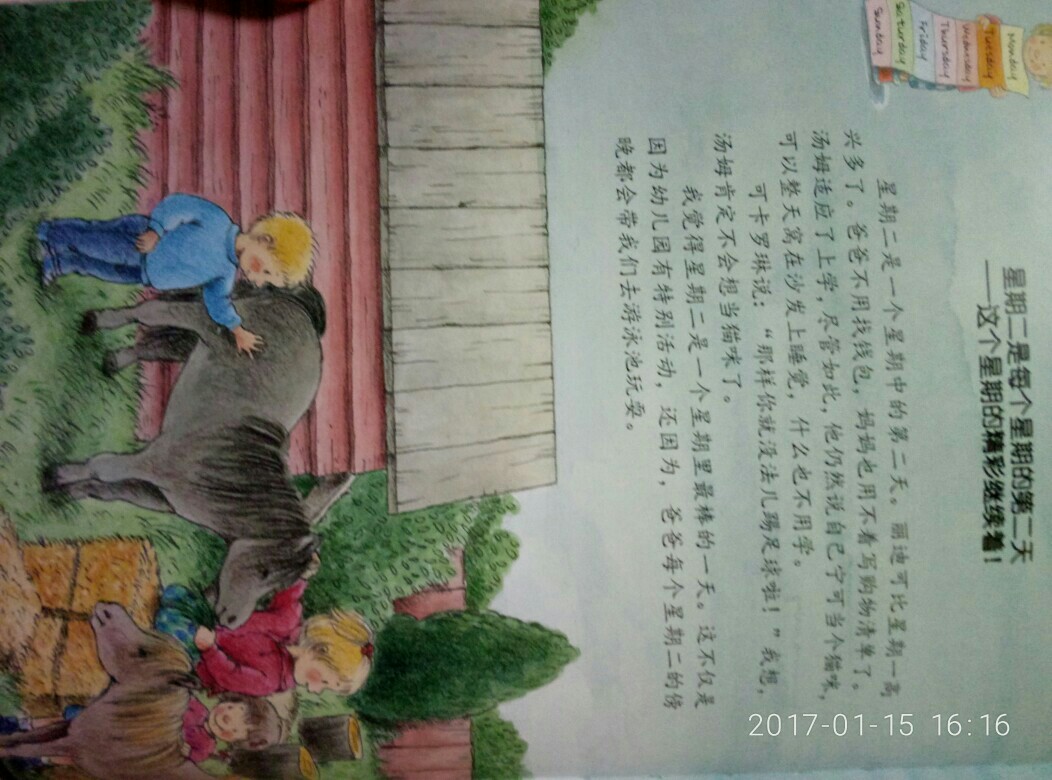 Monday
Tuesday
Wednesday
Thursday
Friday
Saturday
Sunday
星期二是每个星期的第二天
——这个星期的精彩继续着！
星期二是一个星期中的第二天。丽迪可比星期一高
兴多了。爸爸不用找钱包，妈妈也用不着写购物清单了。
汤姆适应了上学，尽管如此，他仍然说自己宁可当个猫咪，
可以整天窝在沙发上睡觉，什么也不用学。
可卡罗琳说：“那样你就没法儿踢足球啦！”我想，
汤姆肯定不会想当猫咪了。
我觉得星期二是一个星期里最棒的一天。这不仅是
因为幼儿园有特别活动，还因为，爸爸每个星期二的傍
晚都会带我们去游泳池玩耍。
2017-01-15 16:16